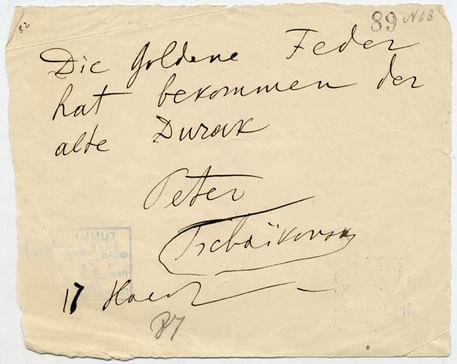 82
89 N68
Die Goldene Feder
hat bekommen der
alte Durak
Peter
Tschaïkovsky
17
87